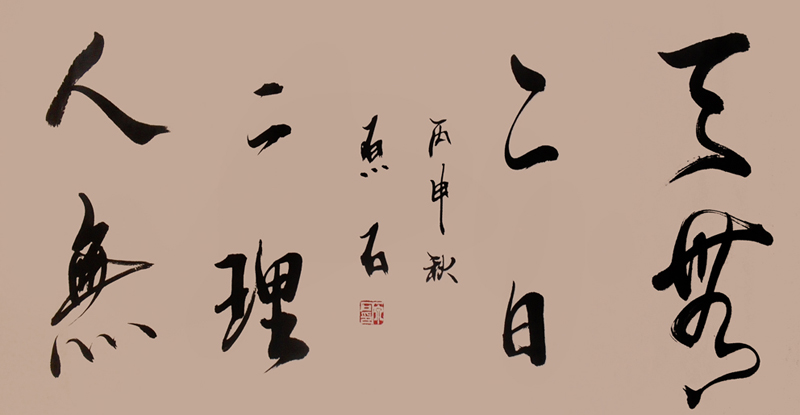 天無
二日
人無
二理
丙申秋
石